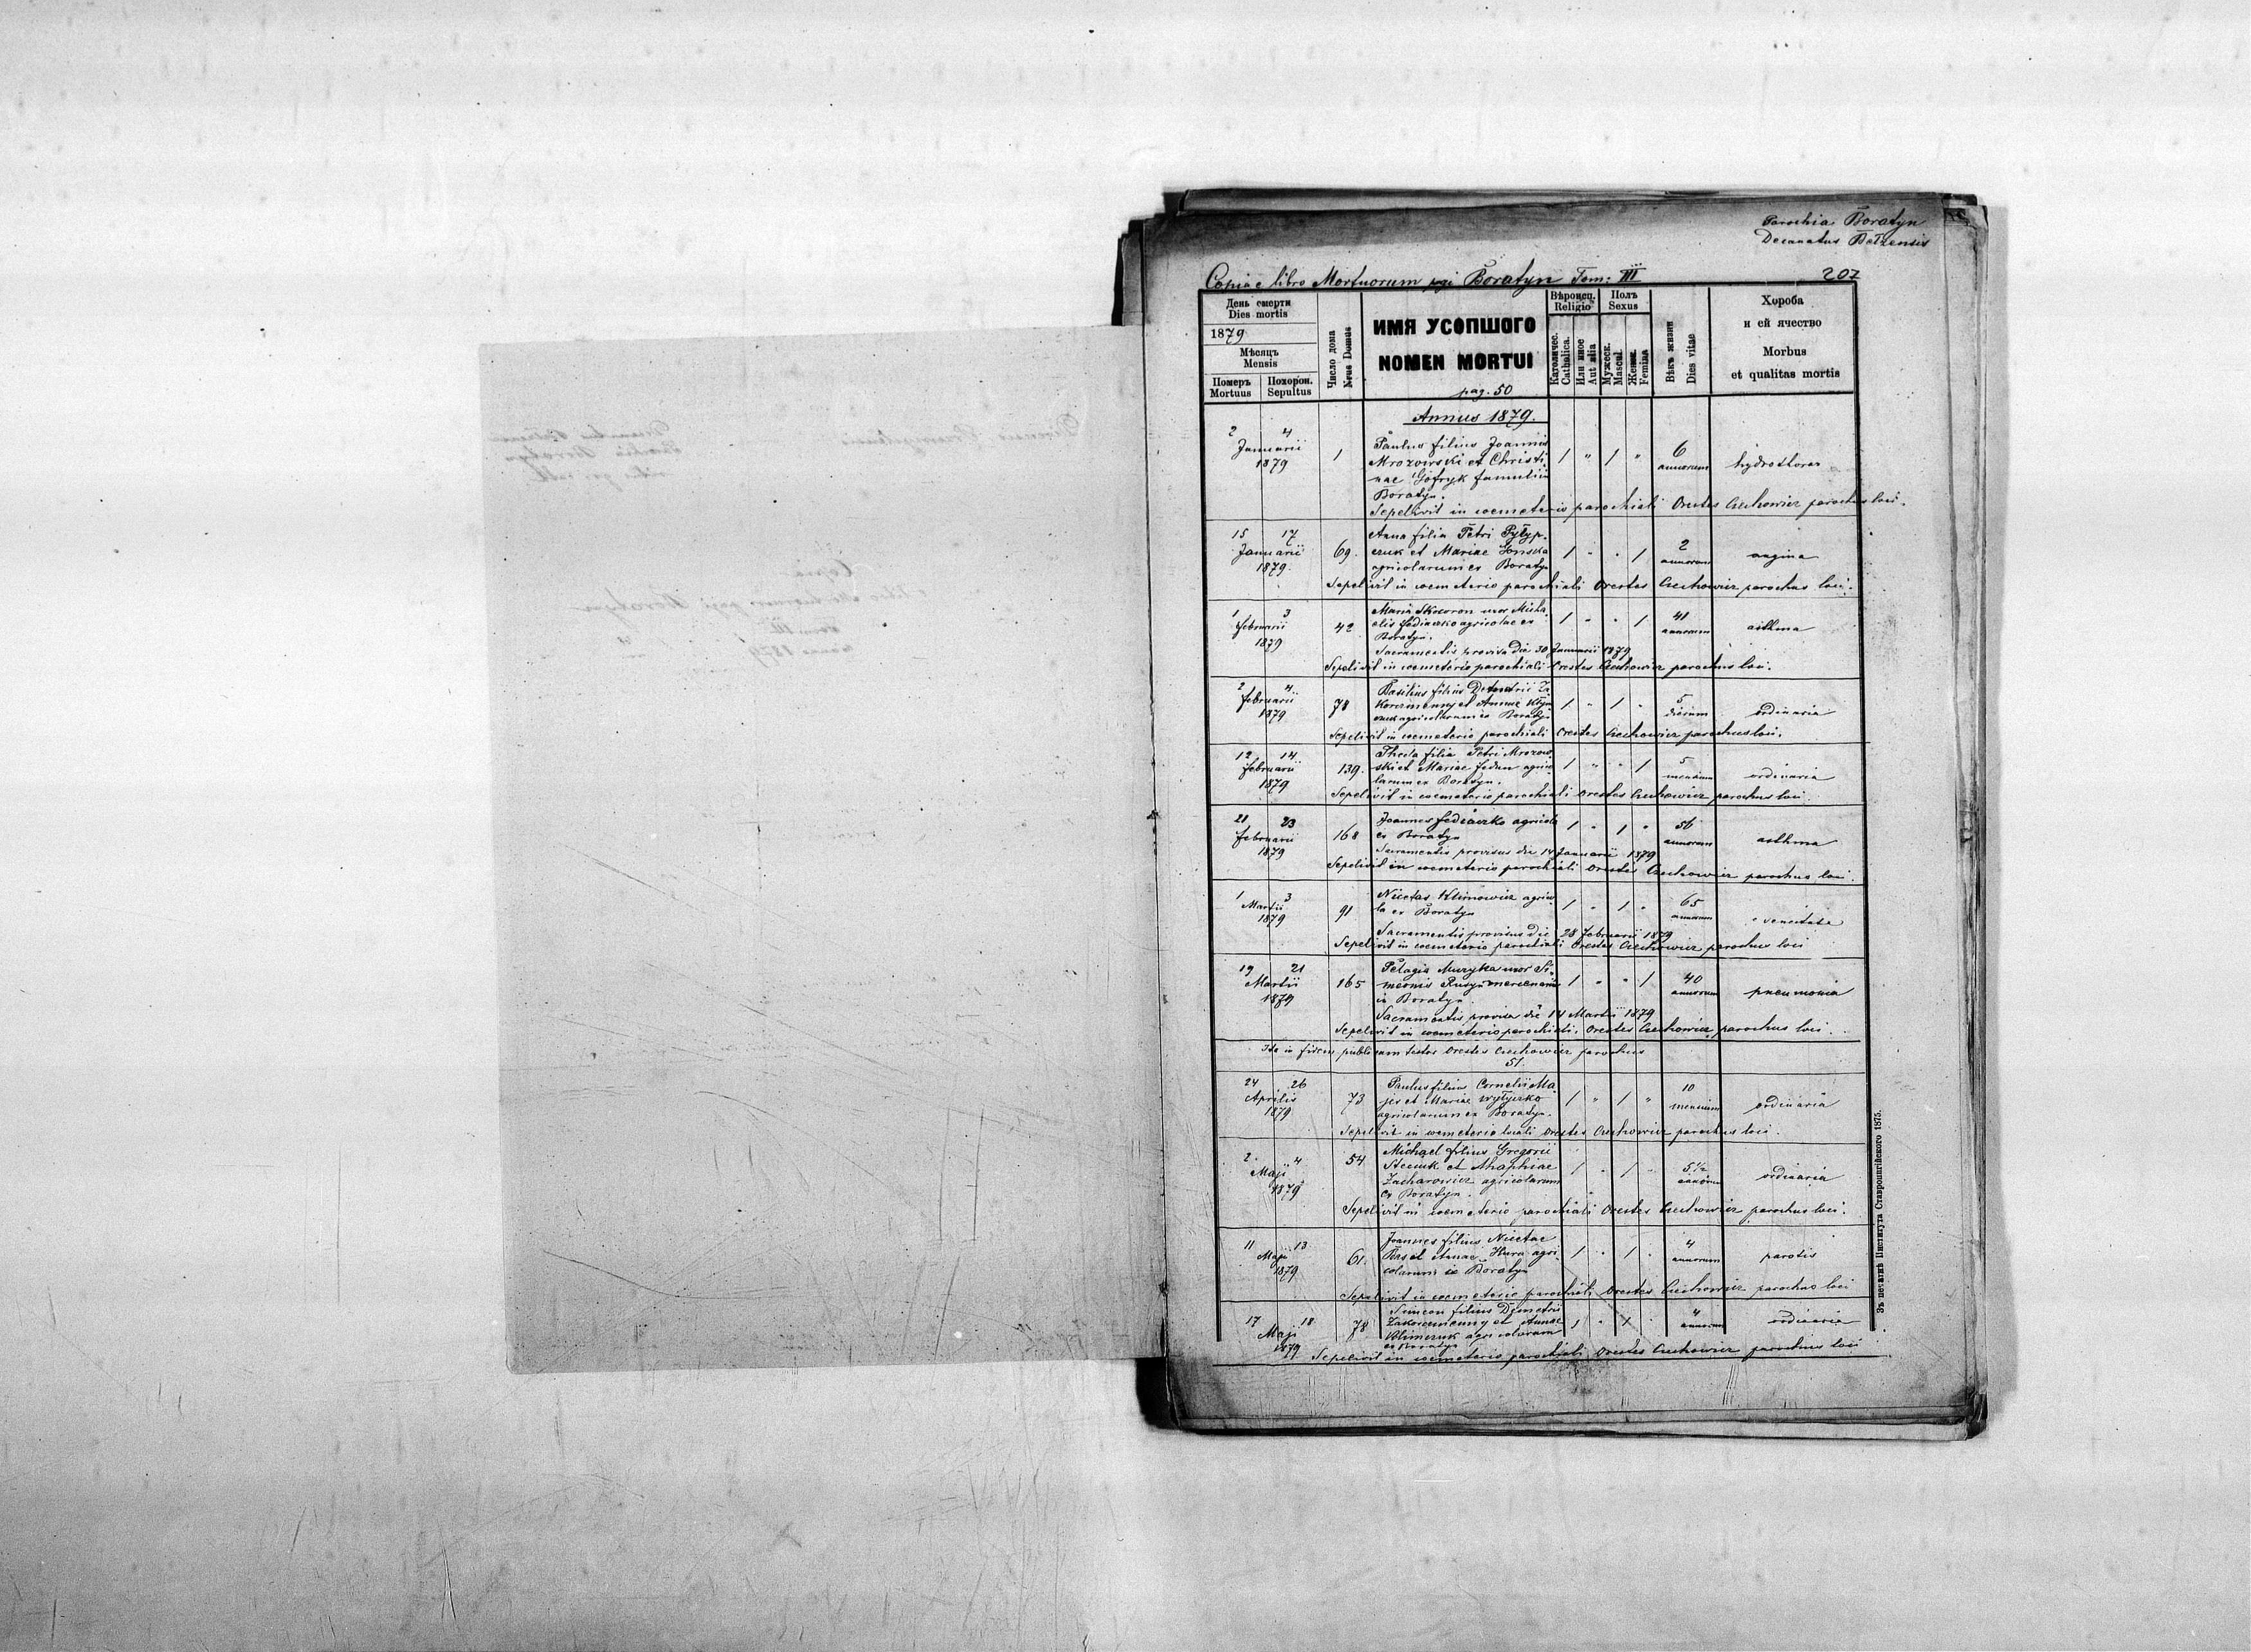 Parochia Boratyn
Decanatus Bełzensis
Copia e libro Mortuorum pgi Boratyn Tom: III
207
День смерти
Dies mortis
1879
Мѣсяцъ
Mensis
Померъ
Mortuus
Похорон.
Sepultus
Число дома
Nrus Domus
ИМЯ УСОПШОГО
NOMEN MORTUI
pag. 50
Вѣроисп.
Religio
Католичес.
Catholica.
Или иное
Aut alia
Полъ
Sexus
Мужеск.
Mascul.
Женск.
Femina
Вѣкъ жизни
Dies vitae
Хороба
и ей ячество
Morbus
et qualitas mortis
Annus 1879.
2 4
Januarii
1879
1
Paulus filius Joannis
Mrozowski et Christi-
nae Gofryk
Boratyn.
1 " 1 "
6
annorum
Sepelivit in coemeterio parochiali Orestes Czechowicz parochus loci.
15 17
Januarii
1879.
69.
Anna filia Petri Pyłyp-
czuk et Mariae
agricolarum ex Boratyn
1 " " 1
2
annorum
angina
Sepelivit in coemeterio parochiali Orestes Czechowicz parochus loci.
1 3
Februarii
1879
42
Maria Skocoron uxor Micha-
elis Fediaczko agricolae ex
Boratyn.
1 " " 1
41
annorum
asthma
Sacramentis provisa die 30 Januarii 1879
Sepelivit in coemeterio parochiali Orestes Czechowicz parochus loci.
2 4
Februarii
1879
78
Basilius filius Demetrii Za-
korczmenny et Annae Klym-
czuk agricolarum ex Boratyn
1 " 1 "
5
dierum
ordinaria
Sepelivit in coemeterio parochiali Orestes Czechowicz parochus loci.
12 14
Februarii
1879
139.
Thecla filia Petri Mrozow-
ski et Mariae Fedun agrico-
larum ex Boratyn.
1 " " 1
5
mensium
ordinaria
Sepelivit in coemeterio parochiali Orestes Czechowicz parochus loci.
21 23
Februarii
1879
168
Joannes Fediaczko agricola
ex Boratyn
1 " 1 "
56
annorum
asthma
Sacramentis provisus die 14 Januarii 1879
Sepelivit in coemeterio parochiali Orestes Czechowicz parochus loci.
1 3
Martii
1879
91
Nicetas Klimowicz agrico-
la ex Boratyn
1 " 1 "
65
annorum
Sacramentis provisus die 28 Februarii 1879
Sepelivit in coemeterio parochiali Orestes Czechowicz parochus loci
19 21
Martii
1879
165
Pelagia Muzyka uxor Si-
meonis Rusyn
in Boratyn
1 " " 1
40
annorum
pneumonia
Sacramentis provisa die 14 Martii 1879
Sepelivit in coemeterio parochiali. Orestes Czechowicz parochus loci.
Ita in fidem publicam testor Orestes Czechowicz parochus
51.
24 26
Aprilis
1879
73
Paulus filius Cornelii Ma-
jer et Mariae Wytyczko
agricolarum ex Boratyn.
1 " 1 "
10
mensium
ordinaria
Sepelivit in coemeterio locali Orestes Czechowicz parochus loci.
2 4
Maji
1879
54
Michael filius Gregorii
Steciuk et Ahaphiae
Zacharowicz agricolarum
ex Boratyn.
1 " 1 "
5 1/2
annorum
ordinaria
Sepelivit in coemeterio parochiali Orestes Czechowicz parochus loci.
11 13
Maji
1879
61.
Joannes filius Nicetae
Bas et Annae Hura agri-
colarum ex Boratyn
1 " 1 "
4
annorum
parotis
Sepelivit in coemeterio parochiali Orestes Czechowicz parochus loci
17 18
Maji
1879
78
Simeon filius Demetrii
Zakorczmenny et Annae
Klimczuk agricolarum
ex Boratyn
1 " 1 "
4
annorum
ordinaria
Sepelivit in coemeterio parochiali Orestes Czechowicz parochus loci
Зъ печатнѣ Института Ставропигійского 1875.